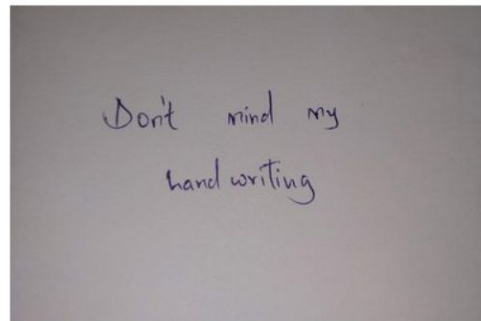 Don't mind my
hand writing